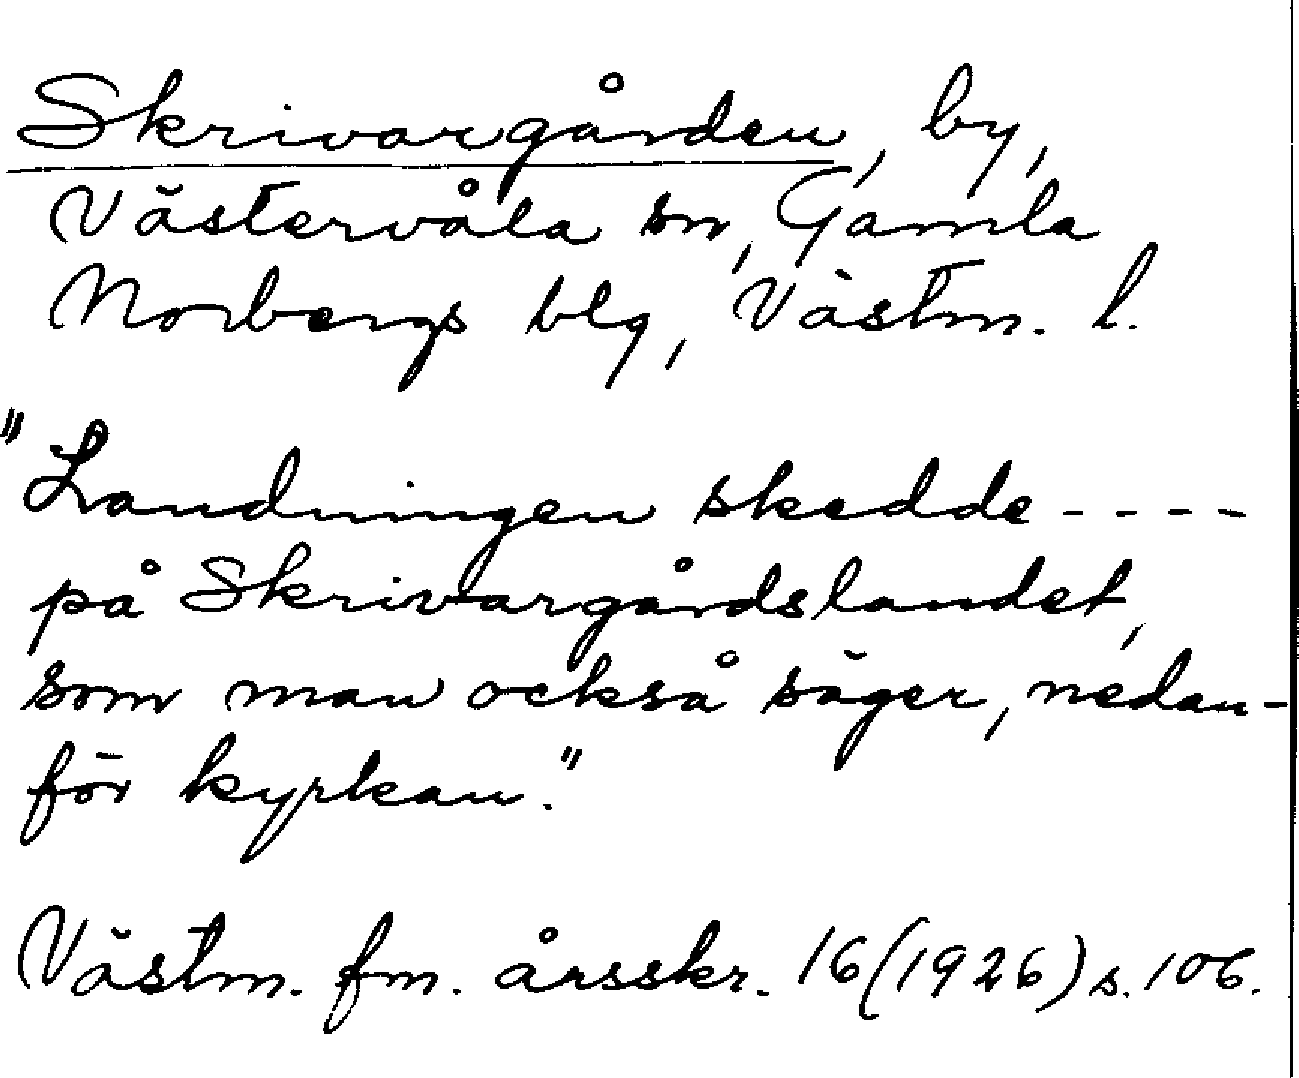 Skrivargården, by,
Västervåla sn, Gamla
Norbergs blg, Västm. l.
"Landningen skedde ----
på Skrivargårdslandet,
som man också säger, nedan-
för kyrkan."
Västm. fm. årsskr. 16(1926)s.106.